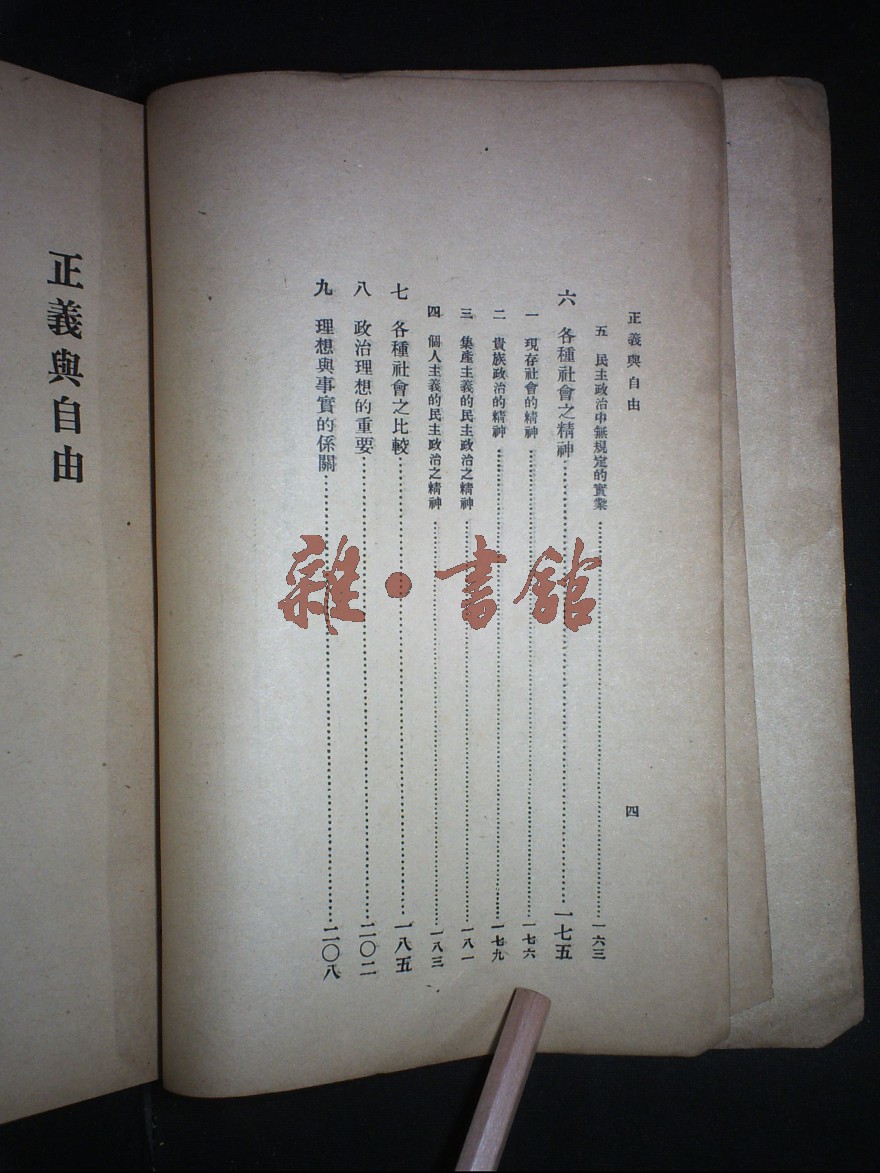 正義與自由
四
五 民主政治中無規定的實業……一六三
六 各種社會之精神……一七五
一 現存社會的精神……一七六
二 貴族政治的精神……一七九
三 集產主義的民主政治之精神……一八一
四 個人主義的民主政治之精神……一八三
七 各種社會之比較……一八五
八 政治理想的重要……二〇二
九 理想與事實的係關……二〇八
正義與自由
雜·書館